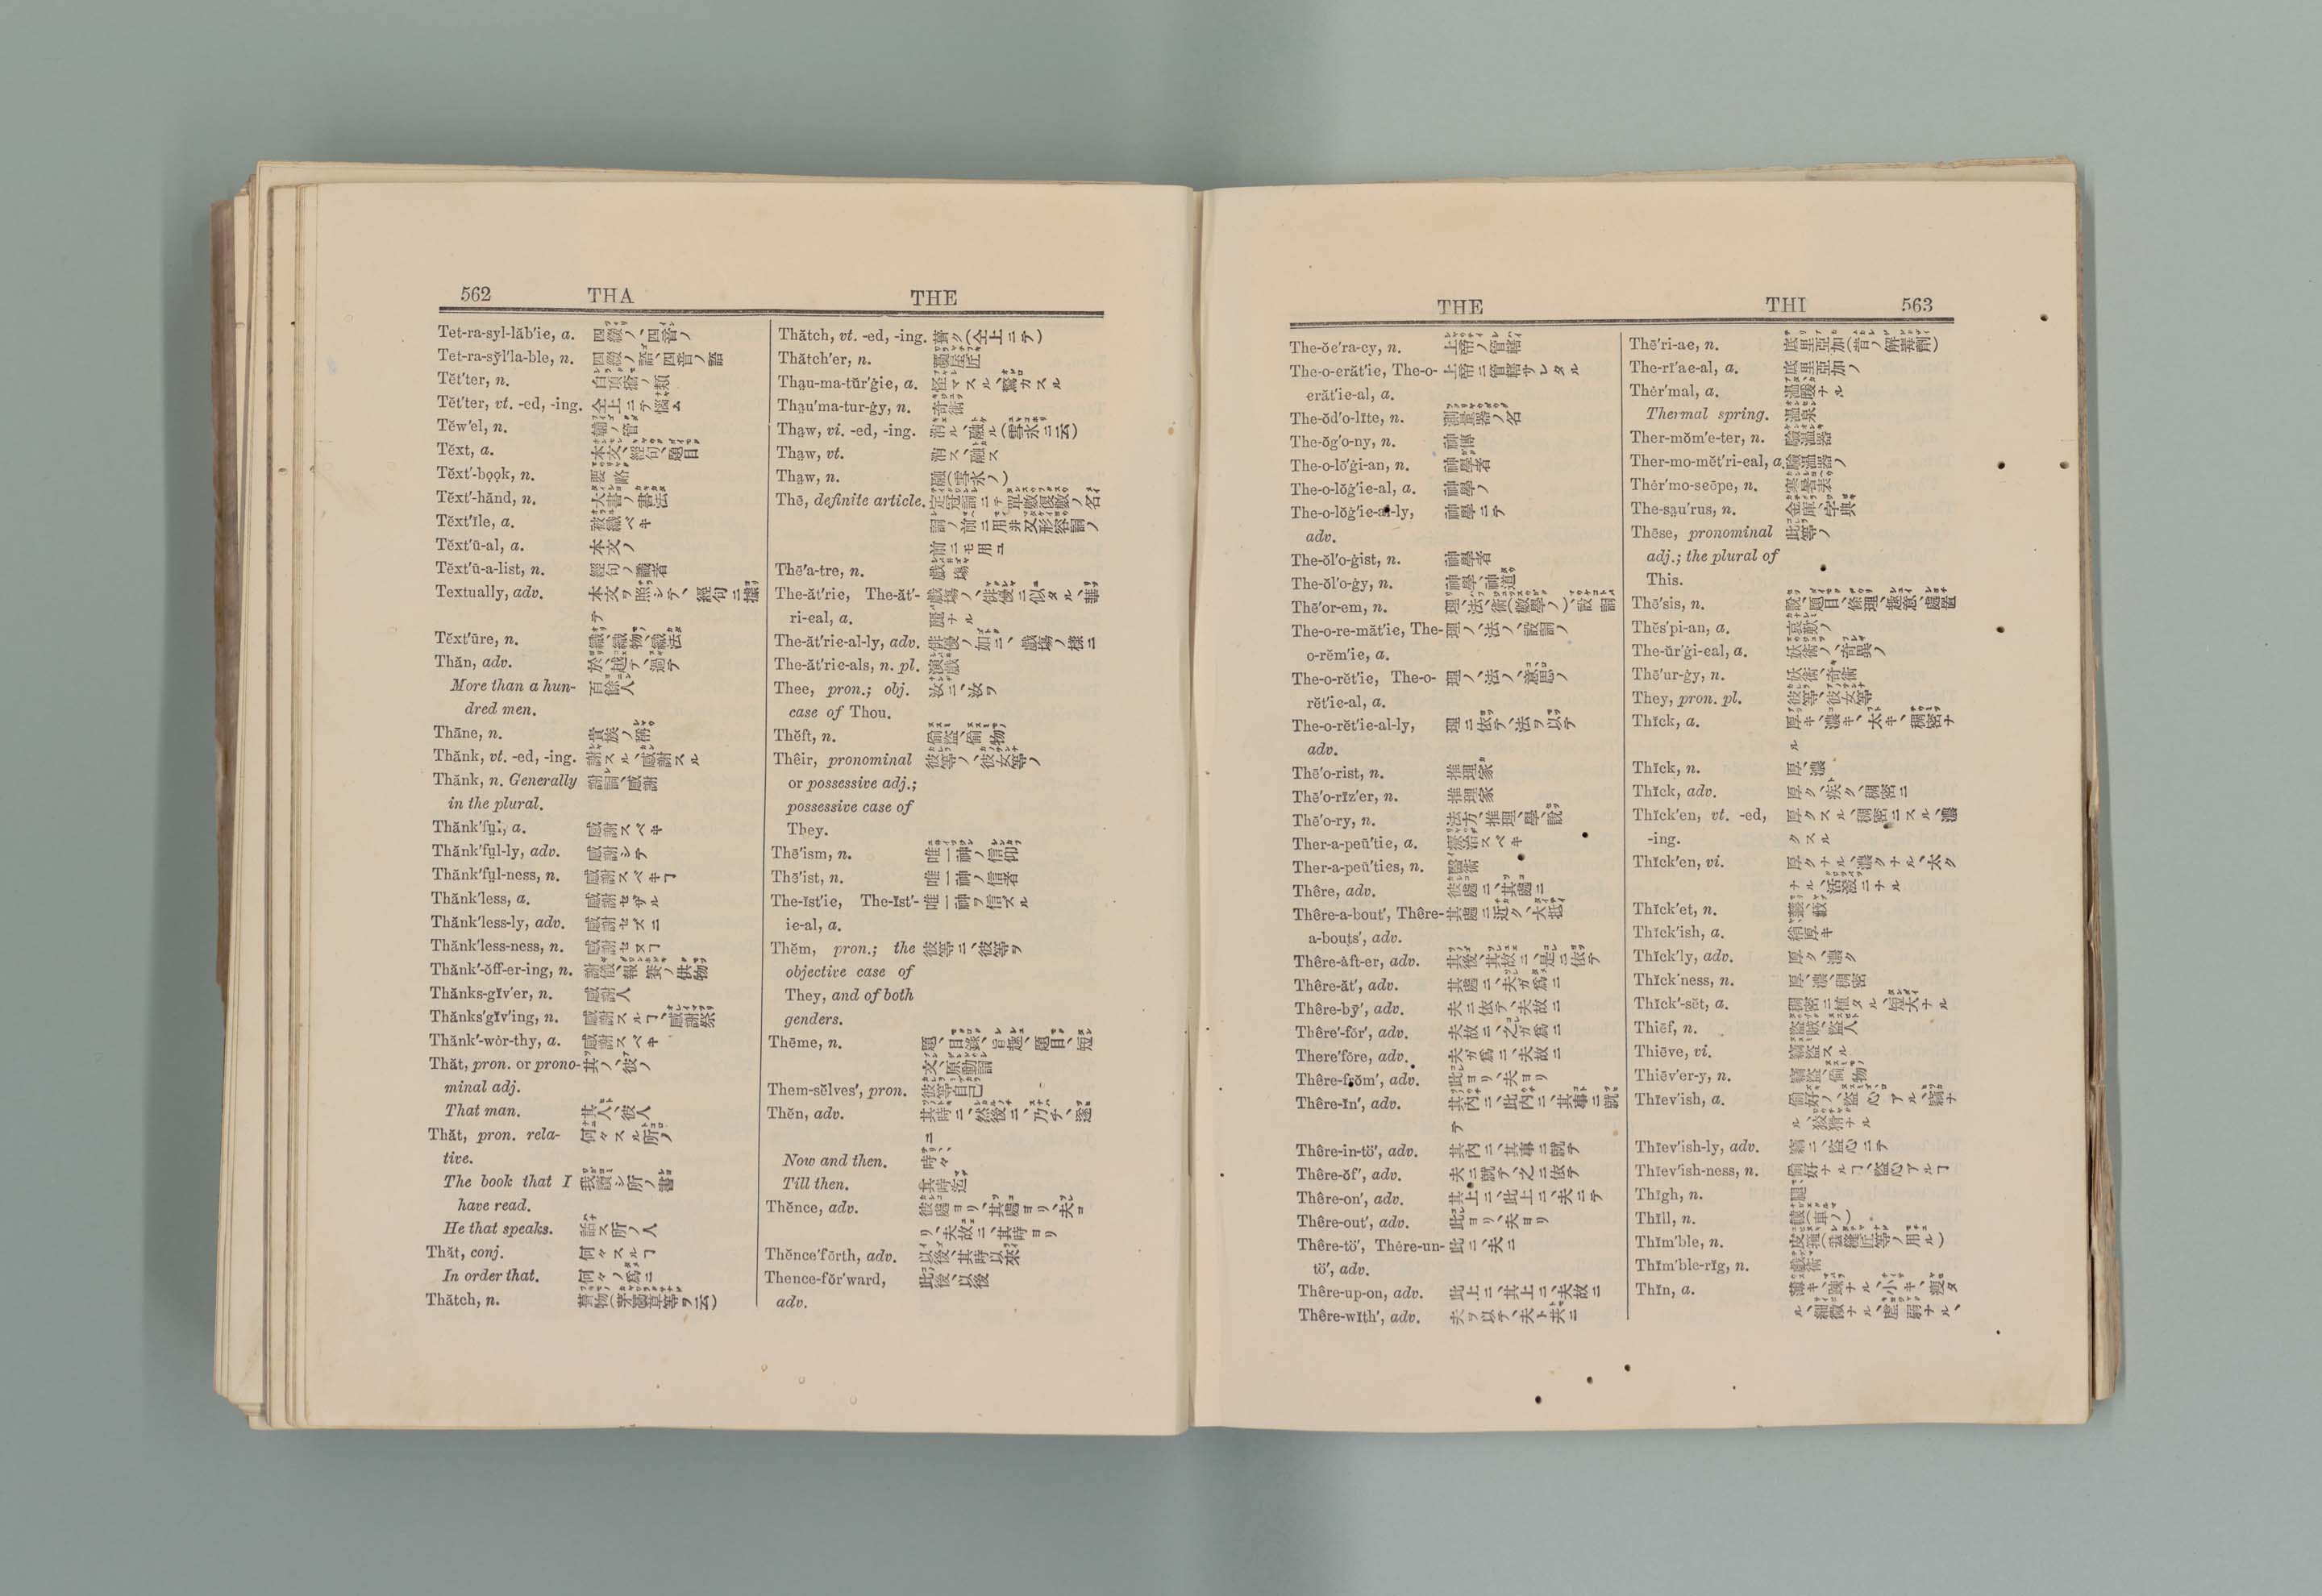 562 THA THE
Tĕt-ra-syl-lăb′ic, a. 四綴ノ、四音ノ
Tet-ra-sўl′la-ble, n. 四綴ノ語、四音ノ語
Tĕt′ter, n. 白頂瘡ノ類
Tĕt′ter, vt. -ed, -ing. 仝上ニテ惱ム
Tĕw′el, n. ノ管
Tĕxt, a. 本文、經句、題目
Tĕxt′-bo͝ok, n. 要略
Tĕxt′-hănd, n. 大書ノ書法
Tĕxt′ĭle, a. 織ベキ
Tĕxt′ū-al, a. 本文ノ
Tĕxt′ū-a-list, n. 經句ノ識者
Textually, adv. 本文ヲ照シテ、經句ニ據
テ
Tĕxt′ūre, n. 織、織物、織法
Thăn, adv. 於、越テ、過テ
More than a hun- 百餘人
dred men.
Thāne, n. 貴族ノ稱
Thănk, vt. -ed, -ing. 謝スル、感謝スル
Thănk, n. Generally 謝詞、感謝
in the plural.
Thănk′fụl, a. 感謝スベキ
Thănk′fụl-ly, adv. 感謝シテ
Thănk′fụl-ness, n. 感謝スベキヿ
Thănk′less, a. 感謝セザル
Thănk′less-ly, adv. 感謝セズニ
Thănk′less-ness, n. 感謝セヌヿ
Thănk′-ŏff-er-ing, n. 謝儀、報賽ノ供物
Thănks-gĭv′er, n. 感謝人
Thănks′gĭv′ing, n. 感謝スルヿ、感謝祭
Thănk′-wór-thy, a. 感謝スベキ
Thăt, pron. or prono- 其ノ、彼ノ
minal adj.
That man. 其人、彼人
Thăt, pron. rela- 何々スル所ノ
tive.
The book that I 我讀シ所ノ書
have read.
He that speaks. 話ス所ノ人
Thăt, conj. 何々スルヿ
In order that. 何々ノ爲ニ
Thătch, n. 葺物(茅藁草等ヲ云)
Thătch, vt. -ed, -ing. 葺ク(仝上ニテ)
Thătch′er, n. 屋匠
Thạu-ma-tŭr′ġic, a. 怪マスル、驚カスル
Thạu′ma-tur-ġy, n. 奇術
Thạw, vi. -ed, -ing. 消ル、融ル(雪氷ニ云)
Thạw, vt. 消ス、融ス
Thạw, n. 融(雪氷ノ)
Thē, definite article. 定冠詞ニテ單數復數ノ名
詞ノ前ニ用并又形容詞ノ
前ニモ用ユ
Thē′a-tre, n. 戲塲
The-ăt′ric, The-ăt′- 戲塲ノ、俳優ニ似タル、華
ri-cal, a. 麗ナル
The-ăt′ric-al-ly, adv. 俳優ノ如ニ、戲塲ノ樣ニ
The-ăt′ric-als, n. pl. 演戲
Thee, pron.; obj. 汝ニ、汝ヲ
case of Thou.
Thĕft, n. 偷盜、偷物
Thêir, pronominal 彼等ノ、彼女等ノ
or possessive adj.;
possessive case of
They.
Thē′ism, n. 唯一神ノ信仰
Thē′ist, n. 唯一神ノ信者
The-ĭst′ic, The-ĭst′- 唯一神ヲ信ズル
ic-al, a.
Thĕm, pron.; the 彼等ニ、彼等ヲ
objective case of
They, and of both
genders.
Thēme, n. 題、目錄、旨趣、題目、短
文、原動詞
Them-sĕlves′, pron. 彼等自己
Thĕn, adv. 其時ニ、然後ニ、乃チ、遂
ニ
Now and then. 時々
Till then. 其時迄
Thĕnce, adv. 彼處ヨリ、其處ヨリ、夫ヨ
リ、夫故ニ、其時ヨリ
Thĕnce′fōrth, adv. 以後、其時以來
Thence-fŏr′ward, 此後、以後
adv.
THE THI 563
The-ŏc′ra-cy, n. 上帝ノ管轄
The-o-crăt′ic, The-o- 上帝ニ管轄サレタル
crăt′ic-al, a.
The-ŏd′o-līte, n. 測量器ノ名
The-ŏg′o-ny, n. 神傳
The-o-lō′ġi-an, n. 神學者
The-o-lŏġ′ic-al, a. 神學ノ
The-o-lŏġ′ic-al-ly, 神學ニテ
adv.
The-ŏl′o-ġist, n. 神學者
The-ŏl′o-ġy, n. 神學、神道
Thē′or-em, n. 理、法、術(數學ノ)、設詞
The-o-re-măt′ic, The- 理ノ、法ノ、設詞ノ
o-rĕm′ic, a.
The-o-rĕt′ic, The-o- 理ノ、法ノ、意思ノ
rĕt′ic-al, a.
The-o-rĕt′ic-al-ly, 理ニ依テ、法ヲ以テ
adv.
Thē′o-rist, n. 推理家
Thē′o-rīz′er, n. 推理家
Thē′o-ry, n. 法方、推理、學、說
Ther-a-peū′tic, a. 治スベキ
Ther-a-peū′tics, n. 醫術
Thêre, adv. 彼處ニ、其處ニ
Thêre-a-bout′, Thêre- 其處ニ近ク、大抵
a-bouts′, adv.
Thêre-áft-er, adv. 其後、其故ニ、是ニ依テ
Thêre-ăt′, adv. 其處ニ、夫ガ爲ニ
Thêre-bȳ′, adv. 夫ニ依テ、夫故ニ
Thêre′-fŏr′, adv. 夫故ニ、之ガ爲ニ
There′fōre, adv. 夫ガ爲ニ、夫故ニ
Thêre-frŏm′, adv. 此ヨリ、夫ヨリ
Thêre-ĭn′, adv. 其内ニ、此内ニ、其事ニ就
テ
Thêre-in-tö′, adv. 其内ニ、其事ニ就テ
Thêre-ŏf′, adv. 夫ニ就テ、之ニ依テ
Thêre-on′, adv. 其上ニ、此上ニ、夫ニテ
Thêre-out′, adv. 此ヨリ、夫ヨリ
Thêre-tö′, Thêre-un- 此ニ、夫ニ
tö′, adv.
Thêre-up-on, adv. 此上ニ、其上ニ、夫故ニ
Thêre-wĭth′, adv. 夫ヲ以テ、夫ト共ニ
Thē′ri-ac, n. 底里亞加(昔ノ解毒劑)
The-rī′ac-al, a. 底里亞加ノ
Thẽr′mal, a. 温暖ナル
Thermal spring. 温泉
Ther-mŏm′e-ter, n. 驗温器
Ther-mo-mĕt′ri-cal, a. 驗温器ノ
Thẽr′mo-scōpe, n. 寒暑表
The-sạu′rus, n. 金庫、字典
Thēse, pronominal 此等ノ
adj.; the plural of
This.
Thē′sis, n. 說、題目、條理、趣意、處置
Thĕs′pi-an, a. 哀歎ノ
The-ŭr′ġi-cal, a. 妖術ノ、奇異ノ
Thē′ur-ġy, n. 妖術、奇術
They, pron. pl. 彼等、彼女等
Thĭck, a. 厚キ、濃キ、太キ、稠密ナ
ル
Thĭck, n. 厚、濃
Thĭck, adv. 厚ク、疾ク、稠密ニ
Thĭck′en, vt. -ed, 厚クスル、稠密ニスル、濃
-ing. クスル
Thĭck′en, vi. 厚クナル、濃クナル、太ク
ナル、活潑ニナル
Thĭck′et, n. 藪
Thĭck′ish, a. 稍厚キ
Thĭck′ly, adv. 厚ク、濃ク
Thĭck′ness, n. 厚、濃、稠密
Thĭck′-sĕt, a. 稠密ニ植タル、短大ナル
Thiēf, n. 盜賊、盜人
Thiēve, vi. 竊盜スル
Thiēv′er-y, n. 竊盜、偷物
Thiēv′ish, a. 偷好ノ、盜心アル、竊ナ
ル、狡猾ナル
Thiēv′ish-ly, adv. 竊ニ、盜心ニテ
Thiēv′ish-ness, n. 偷好ナルヿ、盜心アルヿ
Thīgh, n. 腿
Thĭll, n. 轅(車ノ)
Thĭm′ble, n. 皮箍(裁縫匠等ノ用ル)
Thĭm′ble-rĭg, n. 戲術
Thĭn, a. 薄キ、疎ナル、小キ、瘦タ
ル、細微ナル、虛弱ナル、